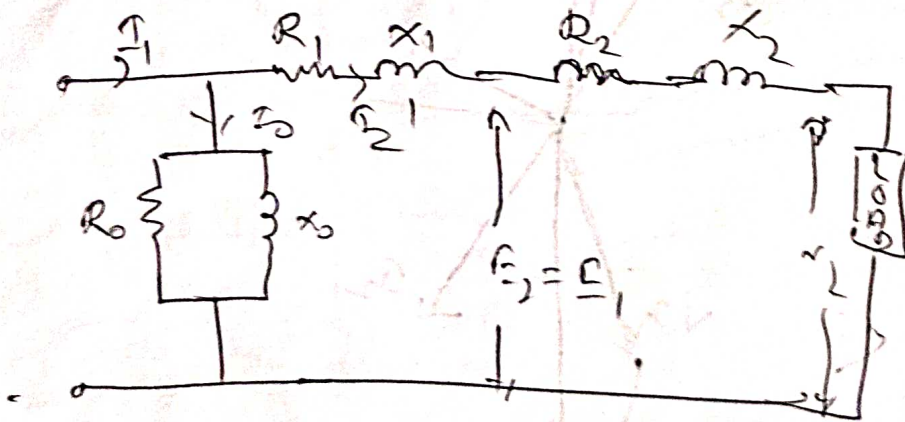 I₁ R₁ X₁ R₂ X₂
I₀ I₂'
R₀ X₀
E₂ = E₁ V₂
LOAD